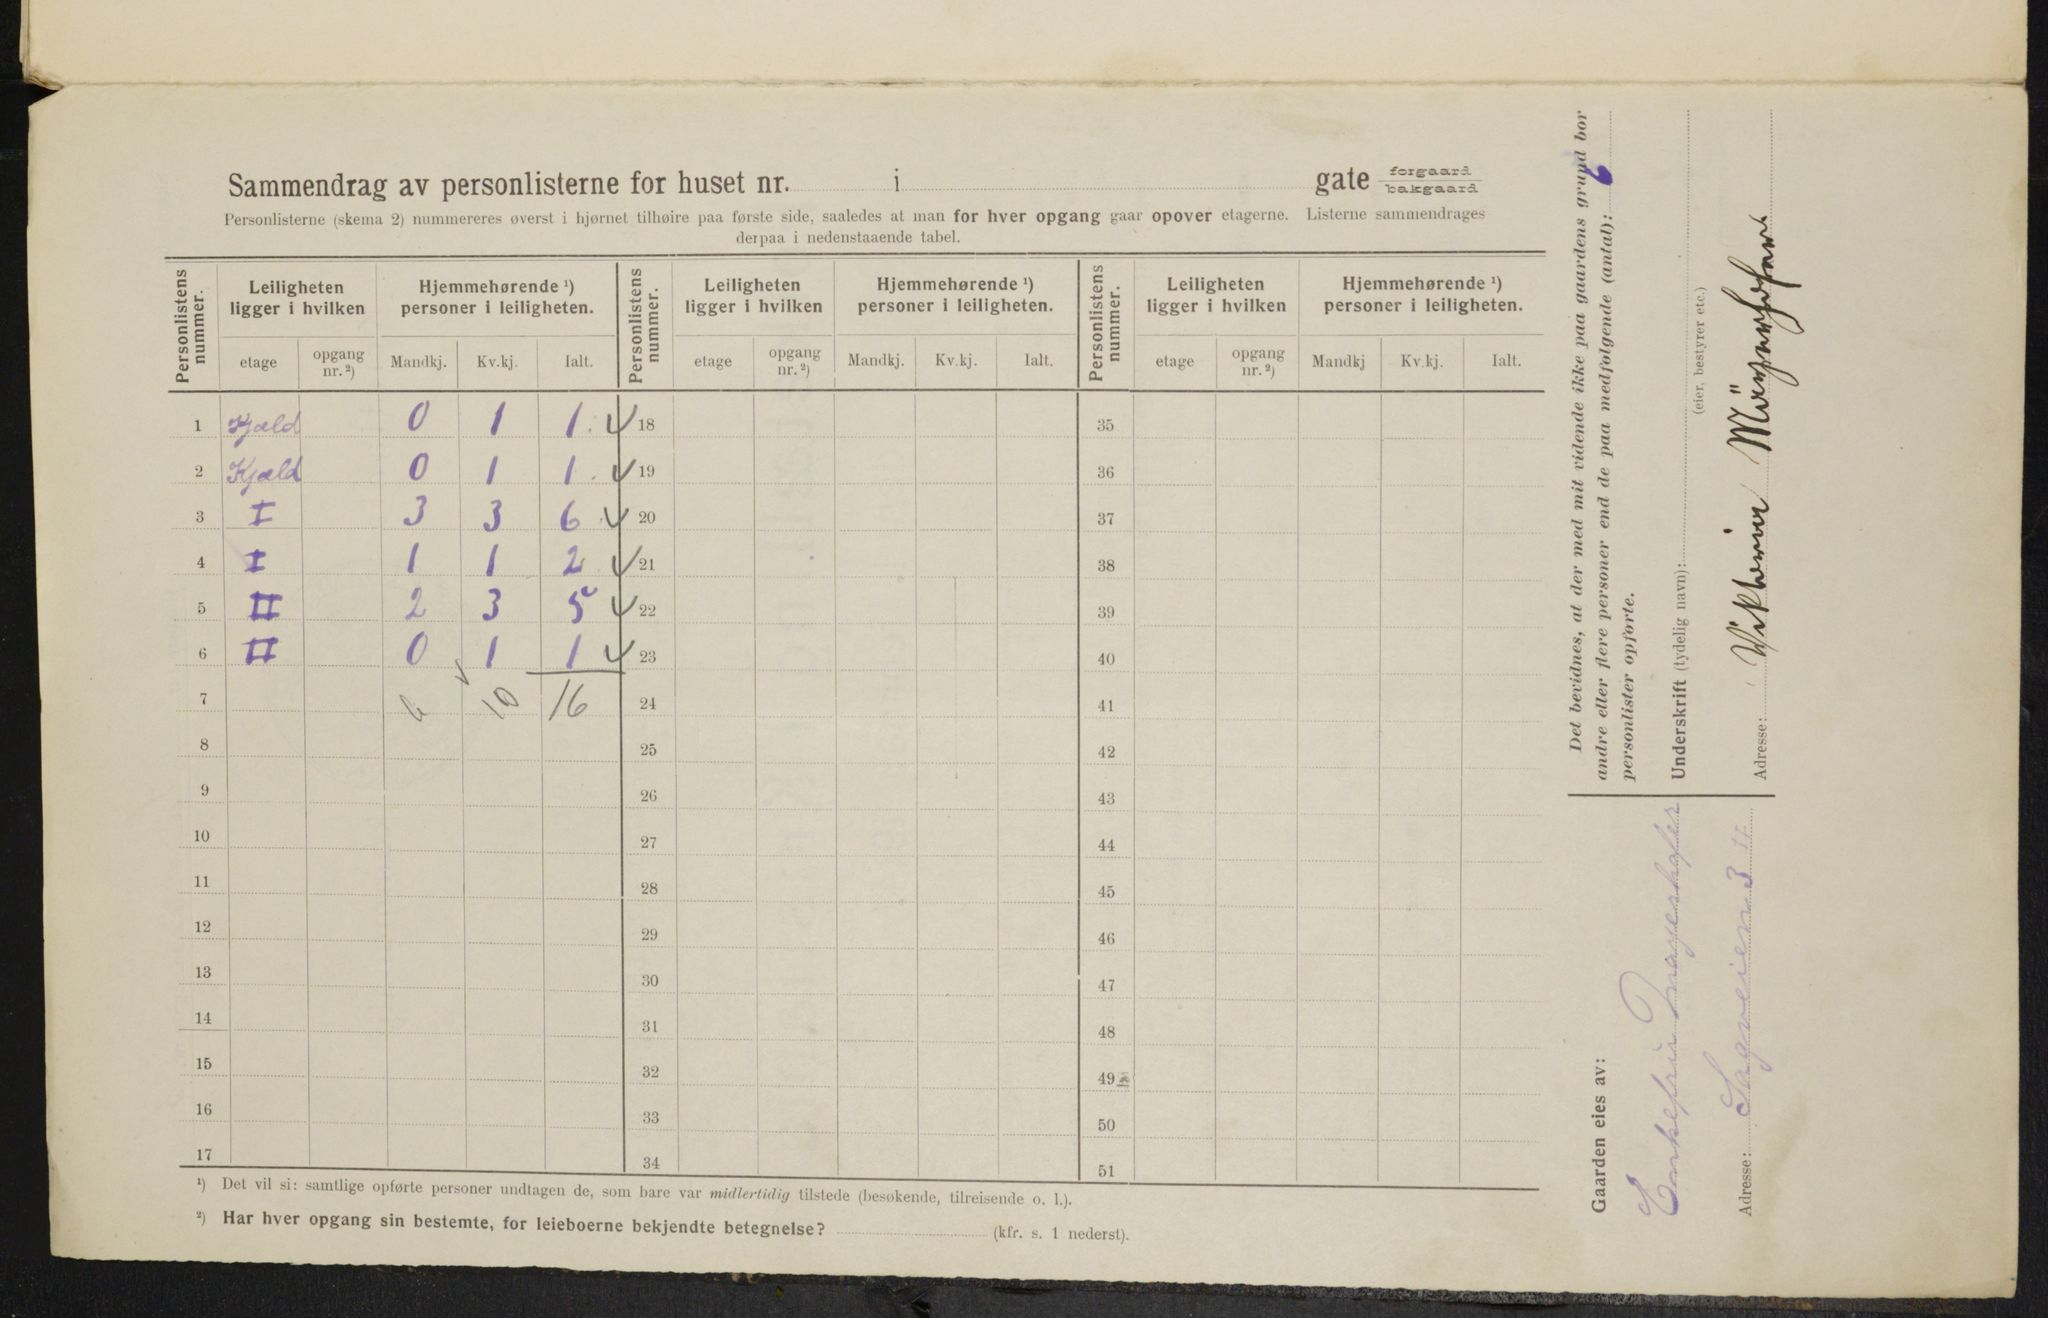 Sammendrag av personlisterne for huset nr. i gate forgaard bakgaard
Personlisterne (skema 2) nummereres øverst i hjørnet tilhøire paa første side, saaledes at man for hver opgang gaar opover etagerne. Listerne sammendrages
derpaa i nedenstaaende tabel.
Personlistens nummer. Leiligheten ligger i hvilken Hjemmehørende ¹) personer i leiligheten. Personlistens nummer. Leiligheten ligger i hvilken Hjemmehørende ¹) personer i leiligheten. Personlistens nummer. Leiligheten ligger i hvilken Hjemmehørende ¹) personer i leiligheten.
etage opgang nr. ²) Mandkj. Kv.kj. Ialt. etage opgang nr. ²) Mandkj. Kv.kj. Ialt. etage opgang nr. ²) Mandkj Kv.kj. Ialt.
1 Kjæld 0 1 1. 18 35
2 Kjæld 0 1 1. 19 36
3 I 3 3 6 20 37
4 I 1 1 2 21 38
5 II 2 3 5 22 39
6 II 0 1 1 23 40
7 6 10 16 24 41
8 25 42
9 26 43
10 27 44
11 28 45
12 29 46
13 30 47
14 31 48
15 32 49
16 33 50
17 34 51
¹) Det vil si: samtlige opførte personer undtagen de, som bare var midlertidig tilstede (besøkende, tilreisende o. l.).
²) Har hver opgang sin bestemte, for leieboerne bekjendte betegnelse? (kfr. s. 1 nederst).
Det bevidnes, at der med mit vidende ikke paa gaardens grund bor
andre eller flere personer end de paa medfølgende (antal): 6
personlister opførte.
Underskrift (tydelig navn):
(eier, bestyrer etc.)
Adresse:
Gaarden eies av:
Enkefru Mayerhofer
Adresse: Sagveien 3 II